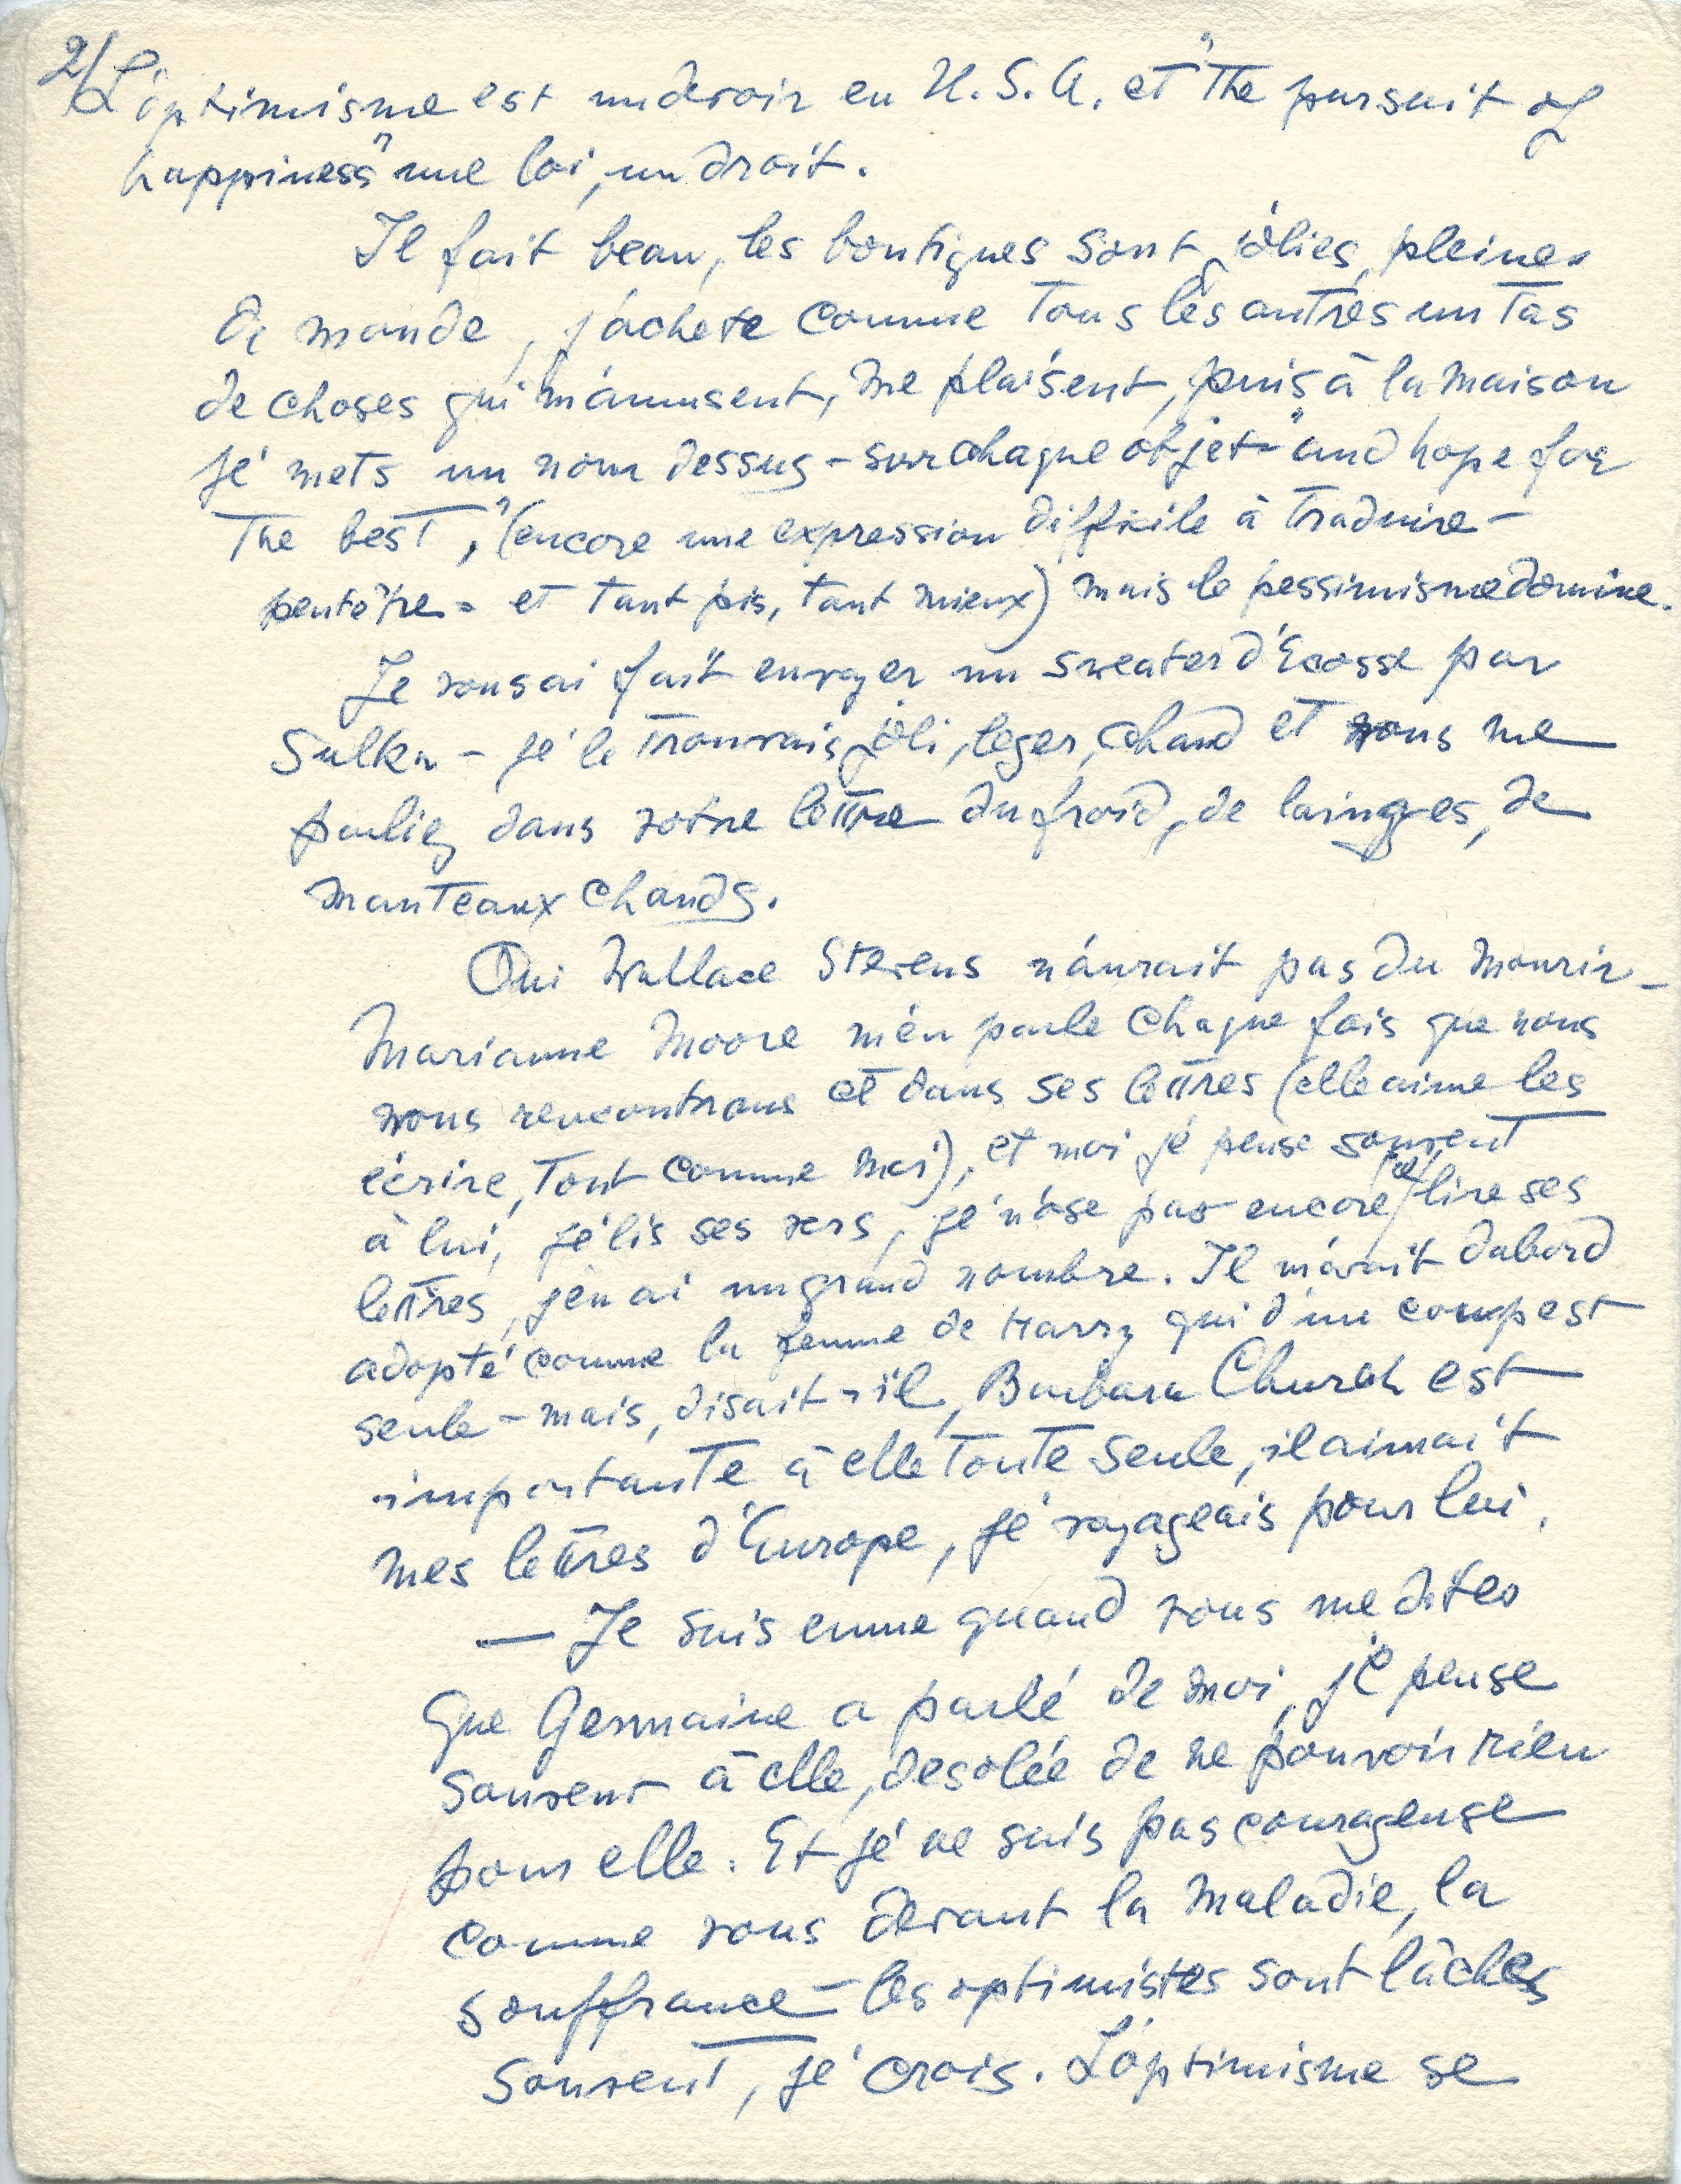 2/ L'optimisme est un devoir en U.S.A. et "the pursuit of
happiness" une loi, un droit.
Il fait beau, les boutiques sont jolies, pleines
de monde, j'achete comme tous les autres un tas
de choses qui m'amusent, me plaisent, puis à la maison
je mets un nom dessus - sur chaque objet - "and hope for
the best," (encore une expression difficile à traduire -
peutêtre - et tant pis, tant mieux) mais le pessimisme domine.
Je vous ai fait envoyer un sweater d'Ecosse par
Sulka - je le trouvais joli, leger, chaud et vous me
parliez dans votre lettre du froid, de lainages, de
manteaux chauds.
Oui Wallace Stevens n'aurait pas du mourir -
Marianne Moore m'en parle chaque fois que nous
nous rencontrons et dans ses lettres (elle aime les
écrire, tout comme moi), et moi je pense souvent
à lui, je lis ses vers, je n'ose pas encore relire ses
lettres, j'en ai un grand nombre. Il m'avait dabord
adopté comme la femme de Harry qui d'un coup est
seule - mais, disait-il, Barbara Church est
importante à elle toute seule, il aimait
mes lettres d'Europe, je voyageais pour lui.
— Je suis emue quand vous me dites
que Germaine a parlé de moi, je pense
souvent à elle, desolée de ne pouvoir rien
pour elle. Et je ne suis pas courageuse
comme vous devant la maladie, la
souffrance - les optimistes sont lâches
souvent, je crois. L'optimisme se